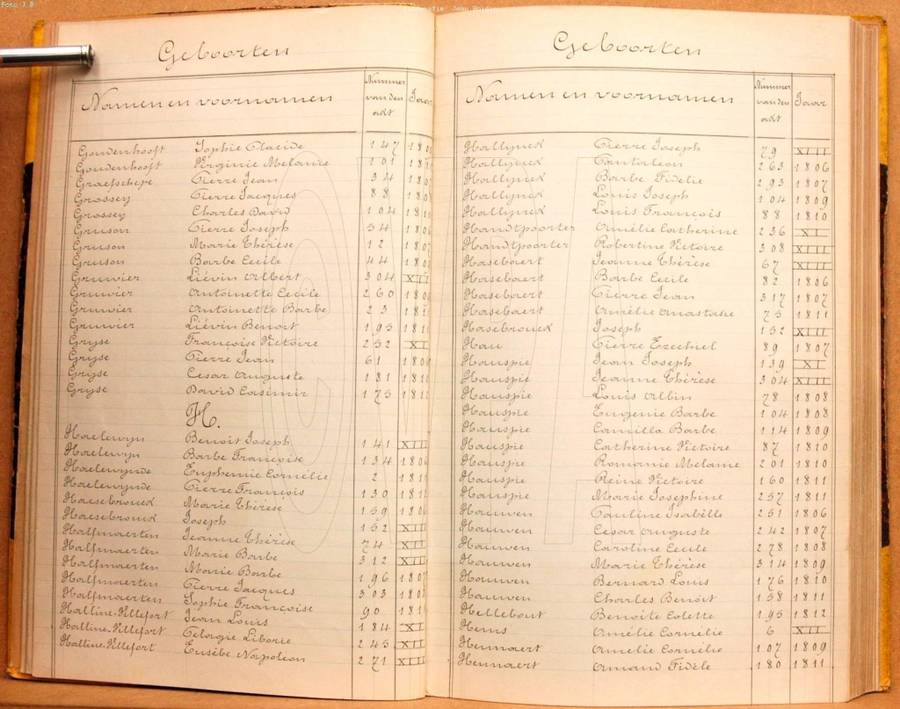 Geboorten
Namen en voornamen Nummer van den akt Jaar
Goudenhooft Sophie Placide 147
Goudenhooft Virginie Melanie 101
Graefschepe Pierre Jean 34
Grossey Pierre Jacques 88
Grossey Charles David 104
Gruson Pierre Joseph 34
Gruson Marie Thérèse 12
Gruson Barbe Cecile 44
Gruwier Liévin Albert 304 XII
Gruwier Antoinette Cecile 260
Gruwier Antoinette Barbe 23
Gruwier Liévin Benoit 193
Gryse Françoise Victoire 252 XI
Gryse Pierre Jean 61
Gryse Cesar Auguste 131
Gryse David Casimir 173
H.
Haelewyn Benoit Joseph 141 XII
Haelewyn Barbe Françoise 134
Haelewynde Euphemie Cornélie 2
Haelewynde Pierre François 130
Haesebrouck Marie Thérèse 159
Haesebrouck Joseph 152
Halfmaerten Jeanne Thérèse 74
Halfmaerten Marie Barbe 312
Halfmaerten Marie Barbe 196
Halfmaerten Pierre Jacques 303
Halfmaerten Sophie Françoise 90
Halline-Villefort Jean Louis 184 XI
Halline-Villefort Pelagie Liborie 243 XII
Halline-Villefort Eusèbe Napoléon 271 XIII
Geboorten
Namen en voornamen Nummer van den akt Jaar
Hallynck Pierre Joseph 79 XIII
Hallynck Pantaleon 263 1806
Hallynck Barbe Fidélie 293 1807
Hallynck Louis Joseph 104 1809
Hallynck Louis François 88 1810
Handtpoorter Amélie Catherine 236 XI
Handtpoorter Robertine Victoire 308 XIII
Hasebaert Jeanne Thérèse 67 XII
Hasebaert Barbe Cecile 82 1806
Hasebaert Pierre Jean 317 1807
Hasebaert Amélie Anastasie 73 1811
Hasebrouck Joseph 152 XIII
Hau Pierre Ezechiel 89 1807
Hauspie Jean Joseph 139 XI
Hauspie Jeanne Thérèse 304 XIII
Hauspie Louis Albin 78 1808
Hauspie Eugenie Barbe 104 1808
Hauspie Camilla Barbe 114 1809
Hauspie Catherine Victoire 87 1810
Hauspie Romanie Melanie 201 1810
Hauspie Reine Victoire 160 1811
Hauspie Marie Josephine 257 1811
Hauwen Pauline Isabille 251 1806
Hauwen Cesar Auguste 242 1807
Hauwen Caroline Cecile 278 1808
Hauwen Marie Thérèse 314 1809
Hauwen Bernard Louis 176 1810
Hauwen Charles Benoit 158 1811
Hellebout Benoite Colette 195 1812
Hems Amélie Cornelie 6 XII
Hennaert Amelie Cornélie 107 1809
Hennaert Amand Fidèle 180 1811